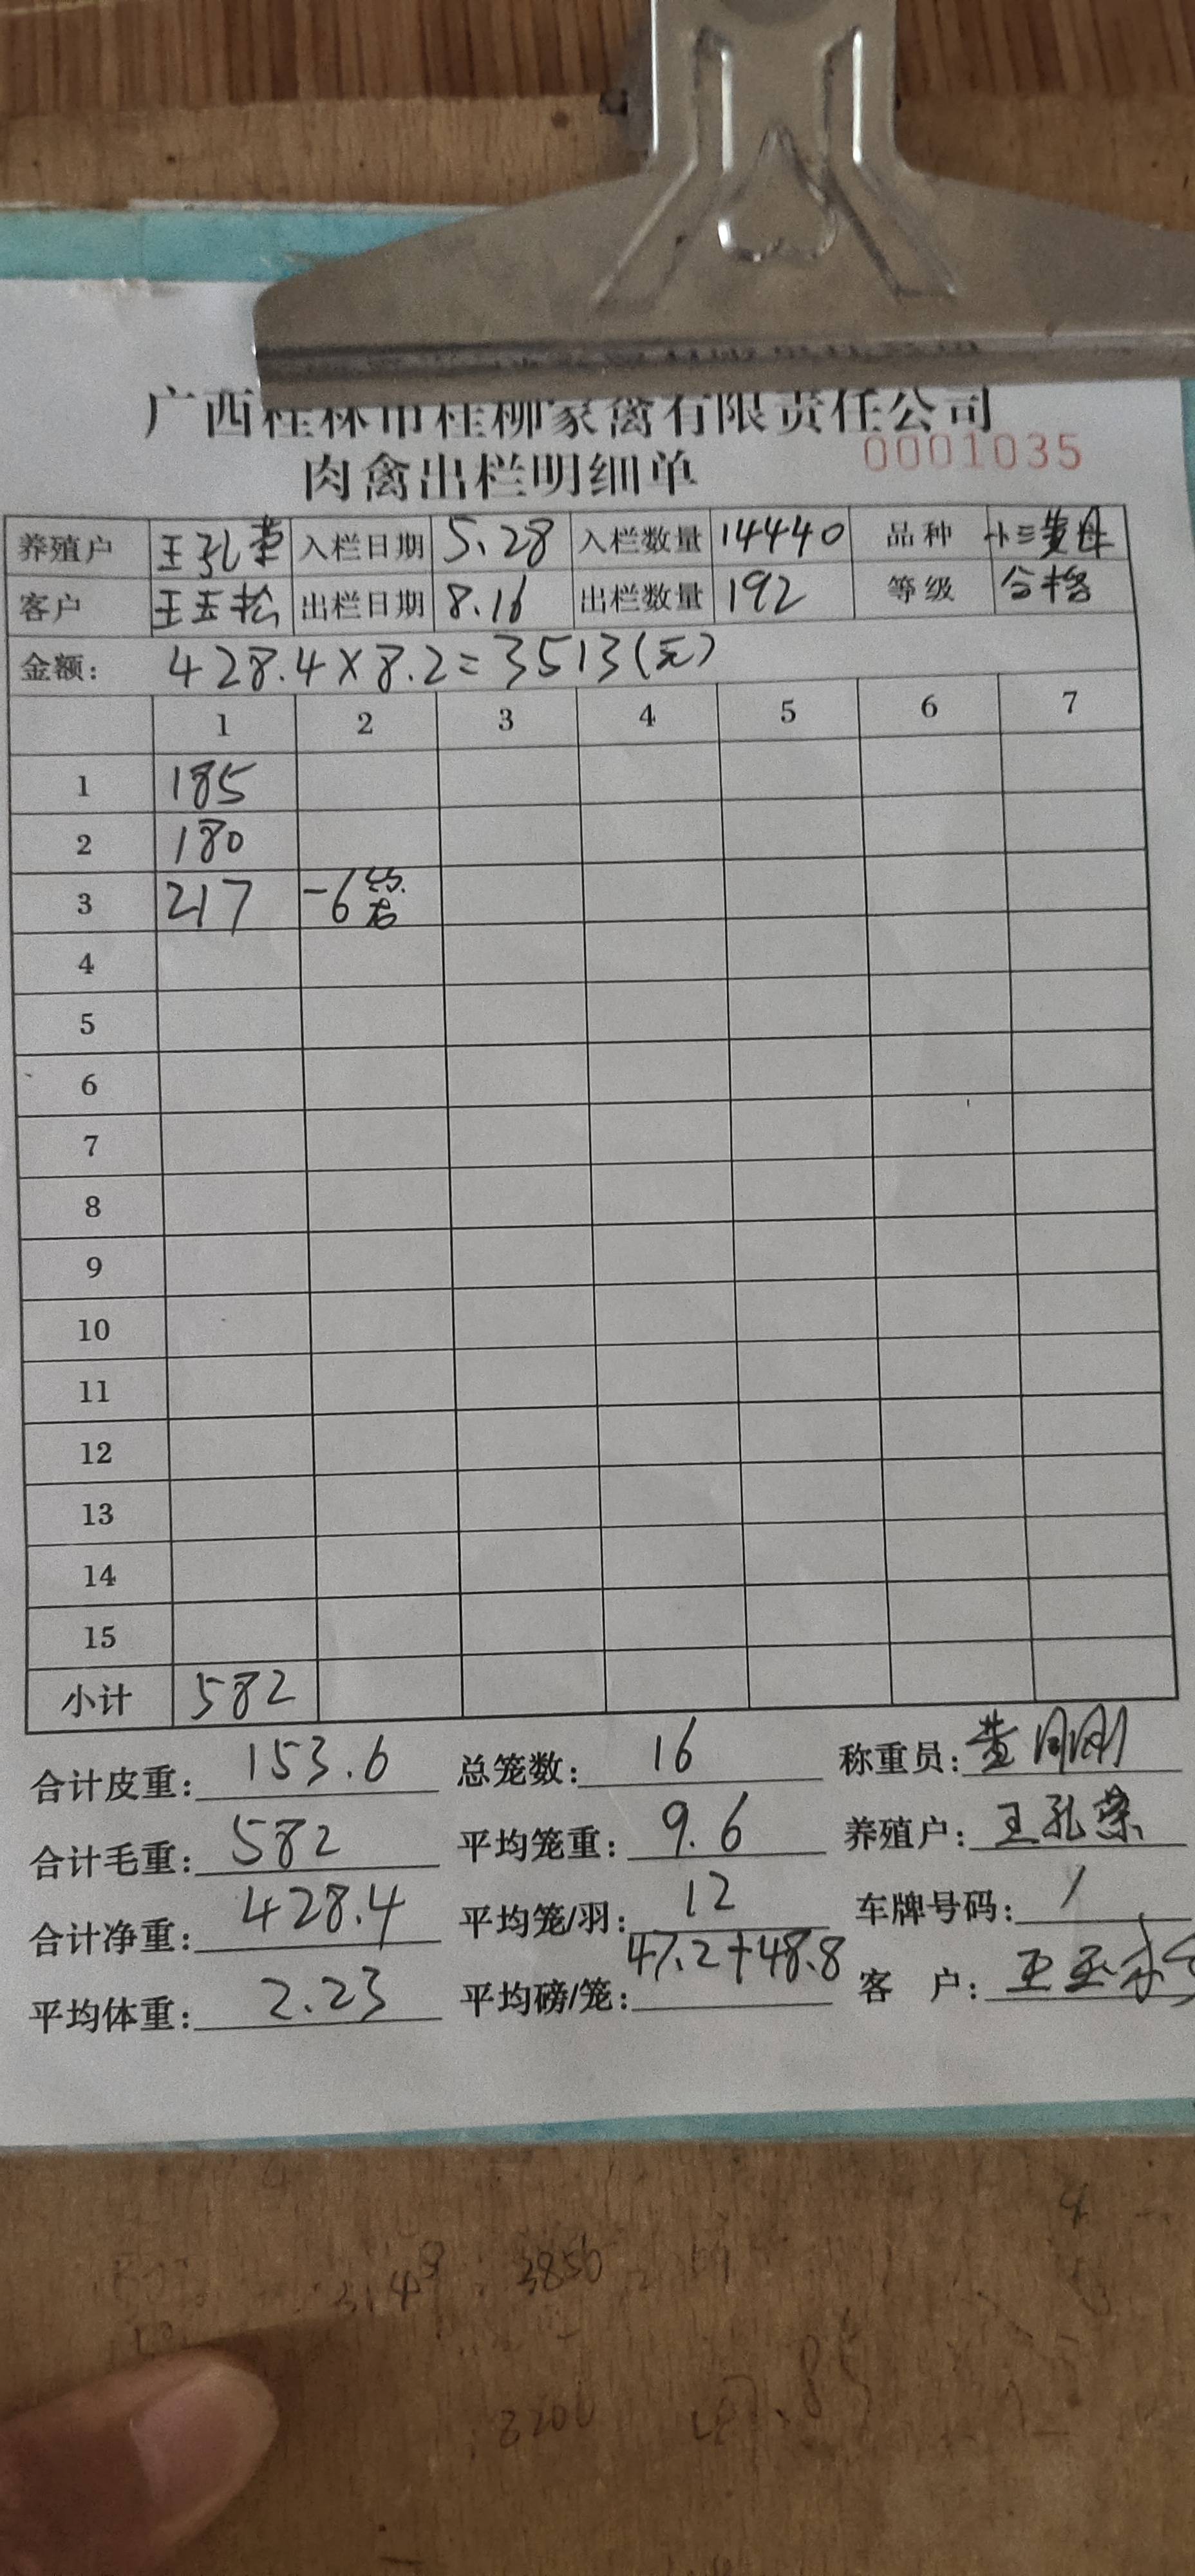 广西桂林市桂柳家禽有限责任公司
0001035
肉禽出栏明细单
养殖户 王孔荣 入栏日期 5.28 入栏数量 14440 品种 小三黄母
客户 王玉松 出栏日期 8.16 出栏数量 192 等级 合格
金额: 428.4×8.2=3513(元)
1 2 3 4 5 6 7
1 185
2 180
3 217 -6
4
5
6
7
8
9
10
11
12
13
14
15
小计 582
合计皮重: 153.6 总笼数: 16 称重员: 黄刚刚
合计毛重: 582 平均笼重: 9.6 养殖户: 王孔荣
合计净重: 428.4 平均笼/羽: 12 车牌号码: /
平均体重: 2.23 平均磅/笼: 47.2+48.8 客 户: 王玉松
3850
3200